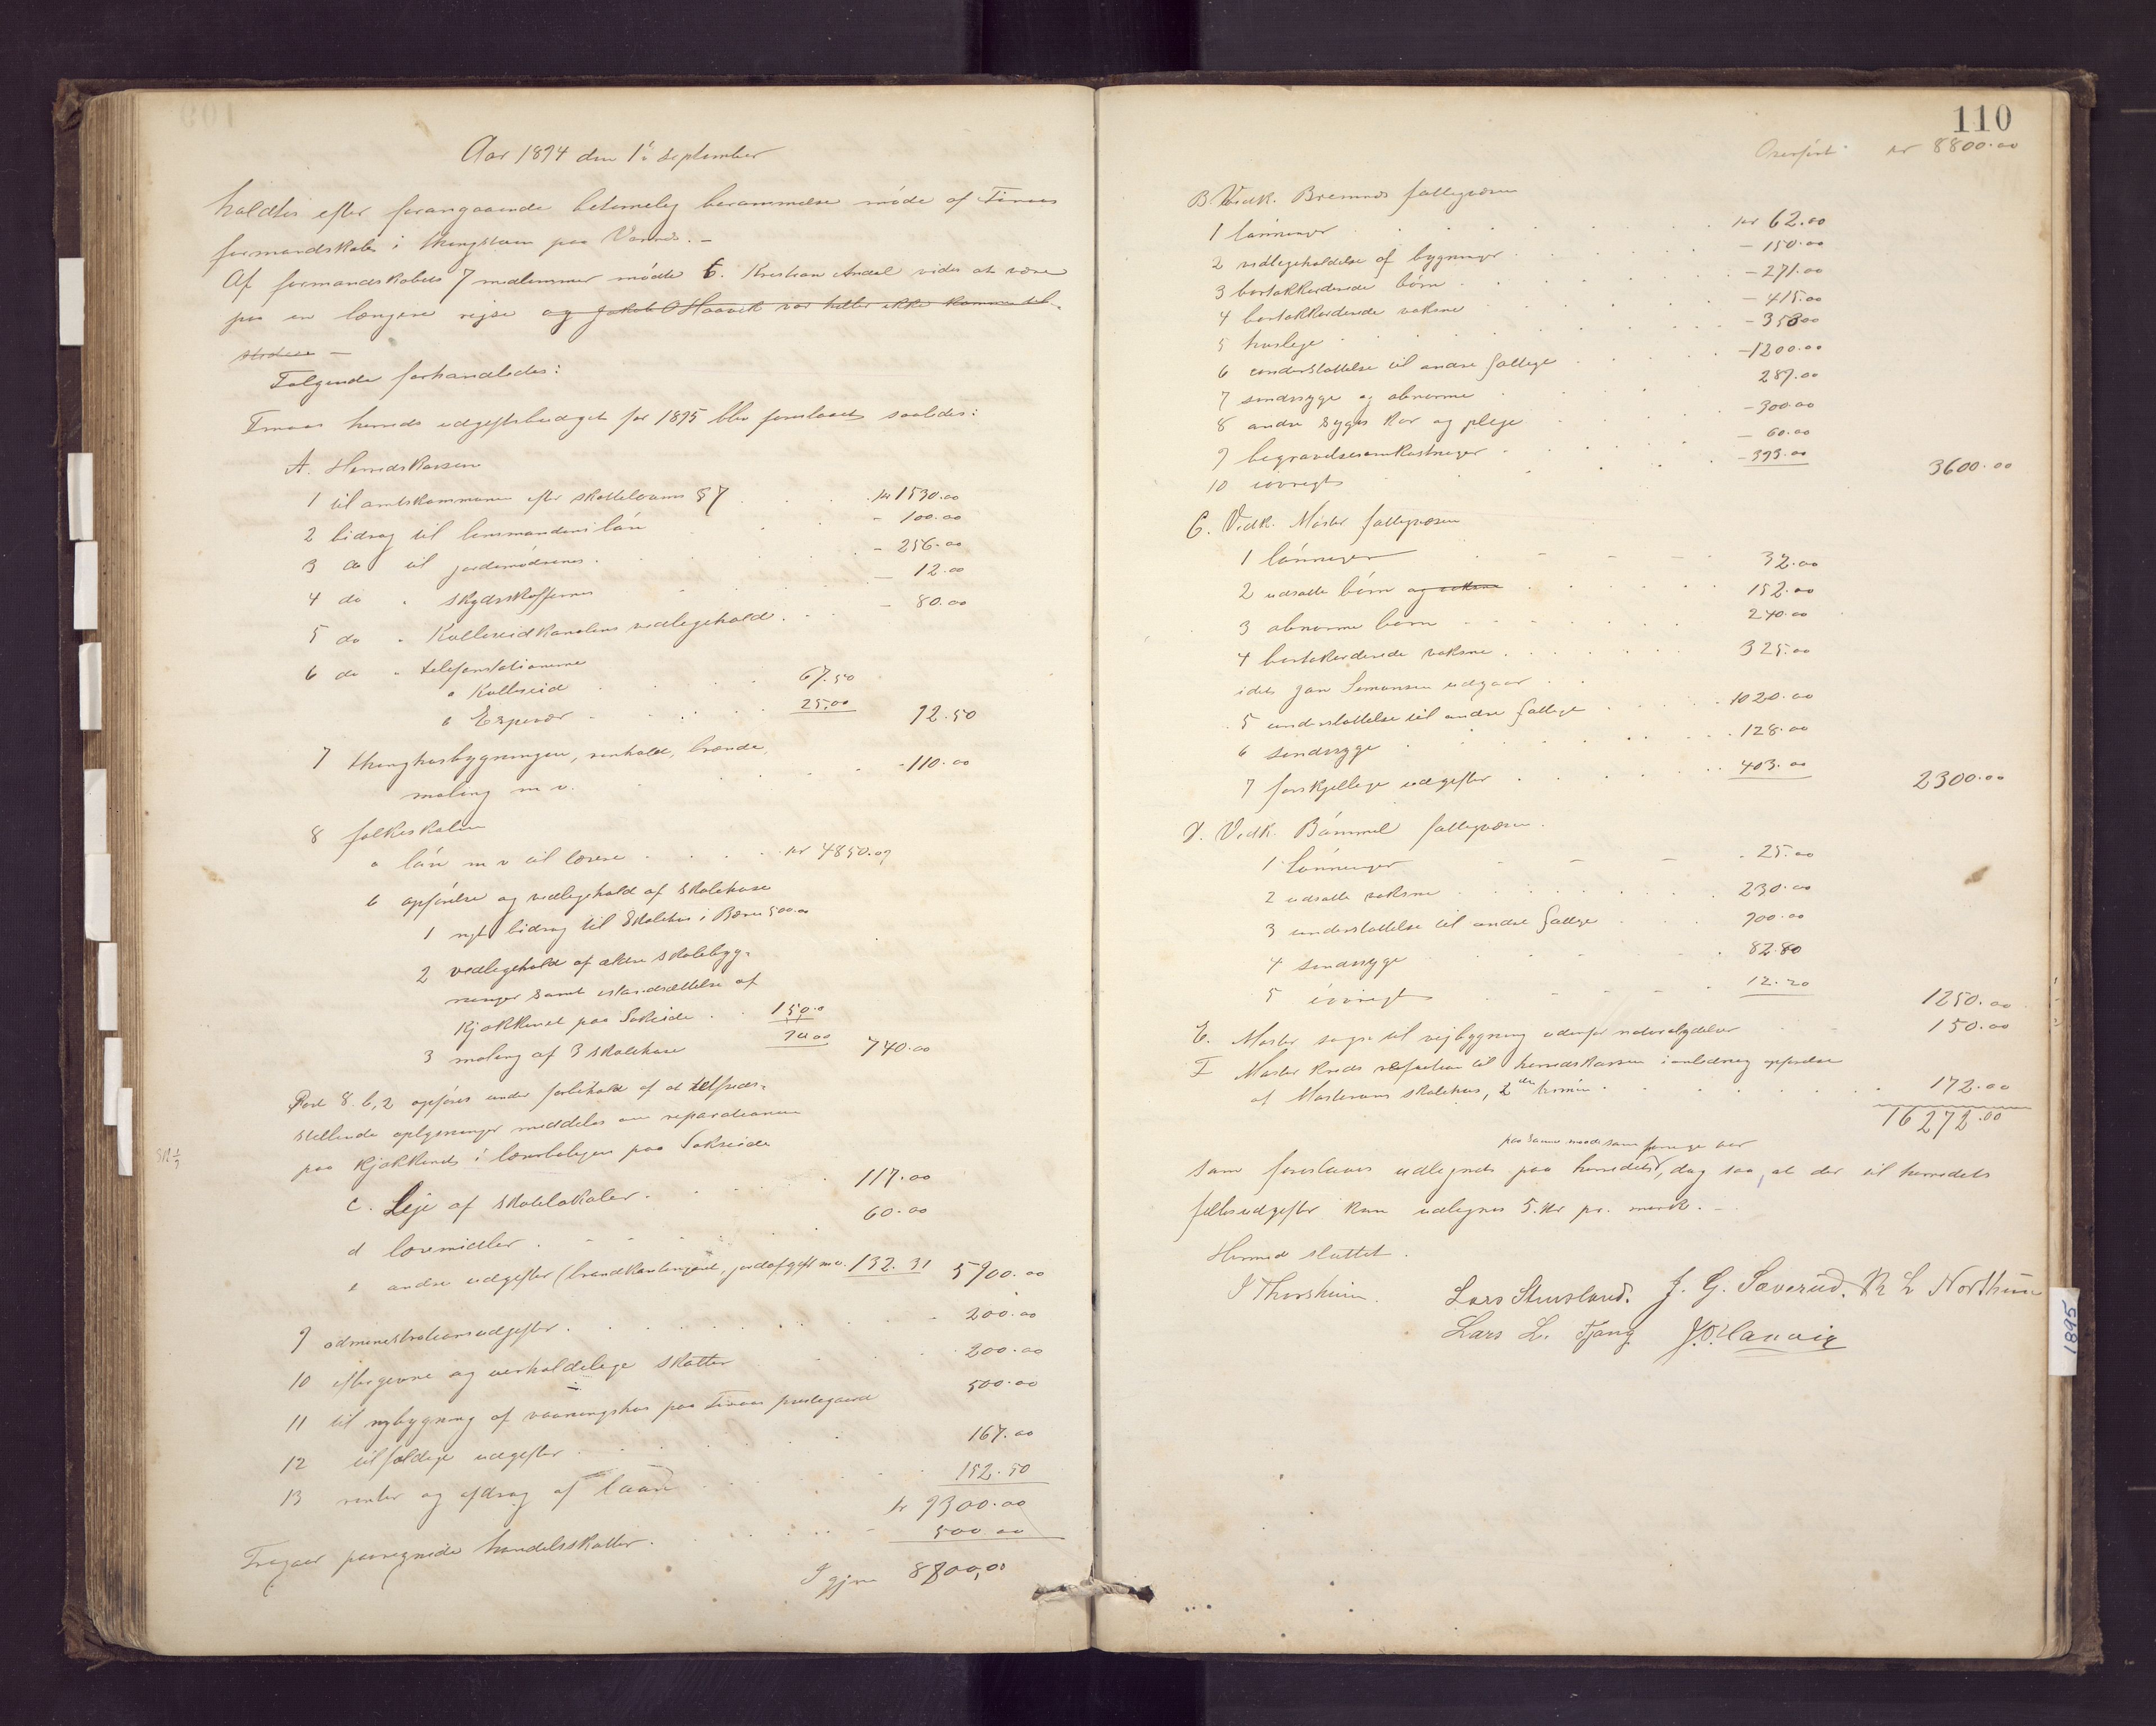 Aar 1894 den 1ste september
holdtes efter forangaaende betimelig berammelse møde af Finaas
formandskab i thingstuen paa Vannes. –
Af formandskabets 7 medlemmer mødte 6. Kristian Andal vides at være
paa en længere rejse og Jakob O Haavik var heller ikke kommen til-
stede –
Følgende forhandledes:
Finaas herreds udgiftsbudget for 1895 blev foreslaaet saaledes:
A. Herredskassen
1 til amtskommunen efter skattelovens § 7 . . . kr 1530.00
2 bidrag til lensmandens løn - 100.00
3 do til jordemødrenes . - 256.00
4 do " skydsskafferne — 12.00
5 do " Kulleseidkanalens vedlegehold . . — 80.00
6 do " telefonstationerne
a Kulleseid . . . 67.50
b Espevær . . . 25.00 92.50
7 thinghusbygningen, renhold, brænde,
maling m v. . . . - 110.00
8 folkeskolen
a løn m v til lærere . . . . kr 4850.09
b opførelse og vedlegehold af skolehuse
1 nyt bidrag til Skolehus i Børø 500.00
2 vedlegehold af ældre skolebyg-
ninger samt istandsættelse af
kjøkkenet paa Sakseide . . 150.0
3 maling af 3 skolehuse 90.00 740.00
Post 8. b, 2 opføres under forbehold af at tilfreds-
stillende oplysninger meddeles om reparationen
paa kjøkkenet i lærerboligen paa Sakseide
c. Leje af skolelokaler . . . 117.00
d læremidler . - - . 60.00
e andre udgifter (brandkontingent, jordafgift m v. 132.31 5900.00
9 administrationsudgifter . . . . 200.00
10 eftergivne og uerholdelige skatter . . . 200.00
11 til nybygning af vaaningshus paa Finaas prestegaard 500.00
12 tilfældige udgifter . . . 167.00
13 renter og afdrag af laan . . . 152.50
kr 9300.00
Fragaar paaregnede handelsskatter . . . - 500.00
Igjen 8800,00
110
Overført kr 8800.00
B. Vedk. Bremnes fattigvæsen
1 lønninger . . . kr 62.00
2 vedlegeholdelse af bygninger . . - 150.00
3 bortakkorderede børn . . - 271.00
4 bortakkorderede voksne - 415.00
5 husleje . . - 358.00
6 understøttelse til andre fattige . . - 1200.00
7 sindssyge og abnorme . 289.00
8 andre syges kur og pleje . . - 300.00
9 begravelsesomkostninger . . — 60.00
10 iøvrigt . . - 393.00 3600.00
C. Vedk. Moster fattigvæsen
1 lønninger . - - - 32.00
2 udsatte børn og voksne . . . 152.00
3 abnorme børn . . . 240.00
4 bortakorderede voksne . . . 325.00
idet Jan Simonsen udgaar . .
5 understøttelse til andre fattige . . 1020.00
6 sindssyge . . . 128.00
7 forskjellige udgifter . . . 403.00 2300.00
D. Vedk. Bømmel fattigvæsen.
1 lønninger - - - . 25.00
2 udsatte voksne . . . 230.00
3 understøttelse til andre fattige . . 900.00
4 sindssyge . . . 82.80
5 iøvrigt - - - . 12.20 1250.00
E. Moster sogn til vejbygning udenfor naturalydelser - 150.00
F Moster kreds refusion til herredskassen i anledning opførelse
af Mosterøens skolehus, 2den termin . . . 172.00
16272.00
paa samme maade som forrige aar
som foreslaaes udlignet paa herredet, dog saa, at der til herredets
fællesudgifter kun udlignes 5. kr pr. mark. –
Hermed sluttet.
J Thorsheim. Lars Stuvsland. J. G. Sæverud. R L Northun
Lars L. Tjang J.O. Haavig
1895